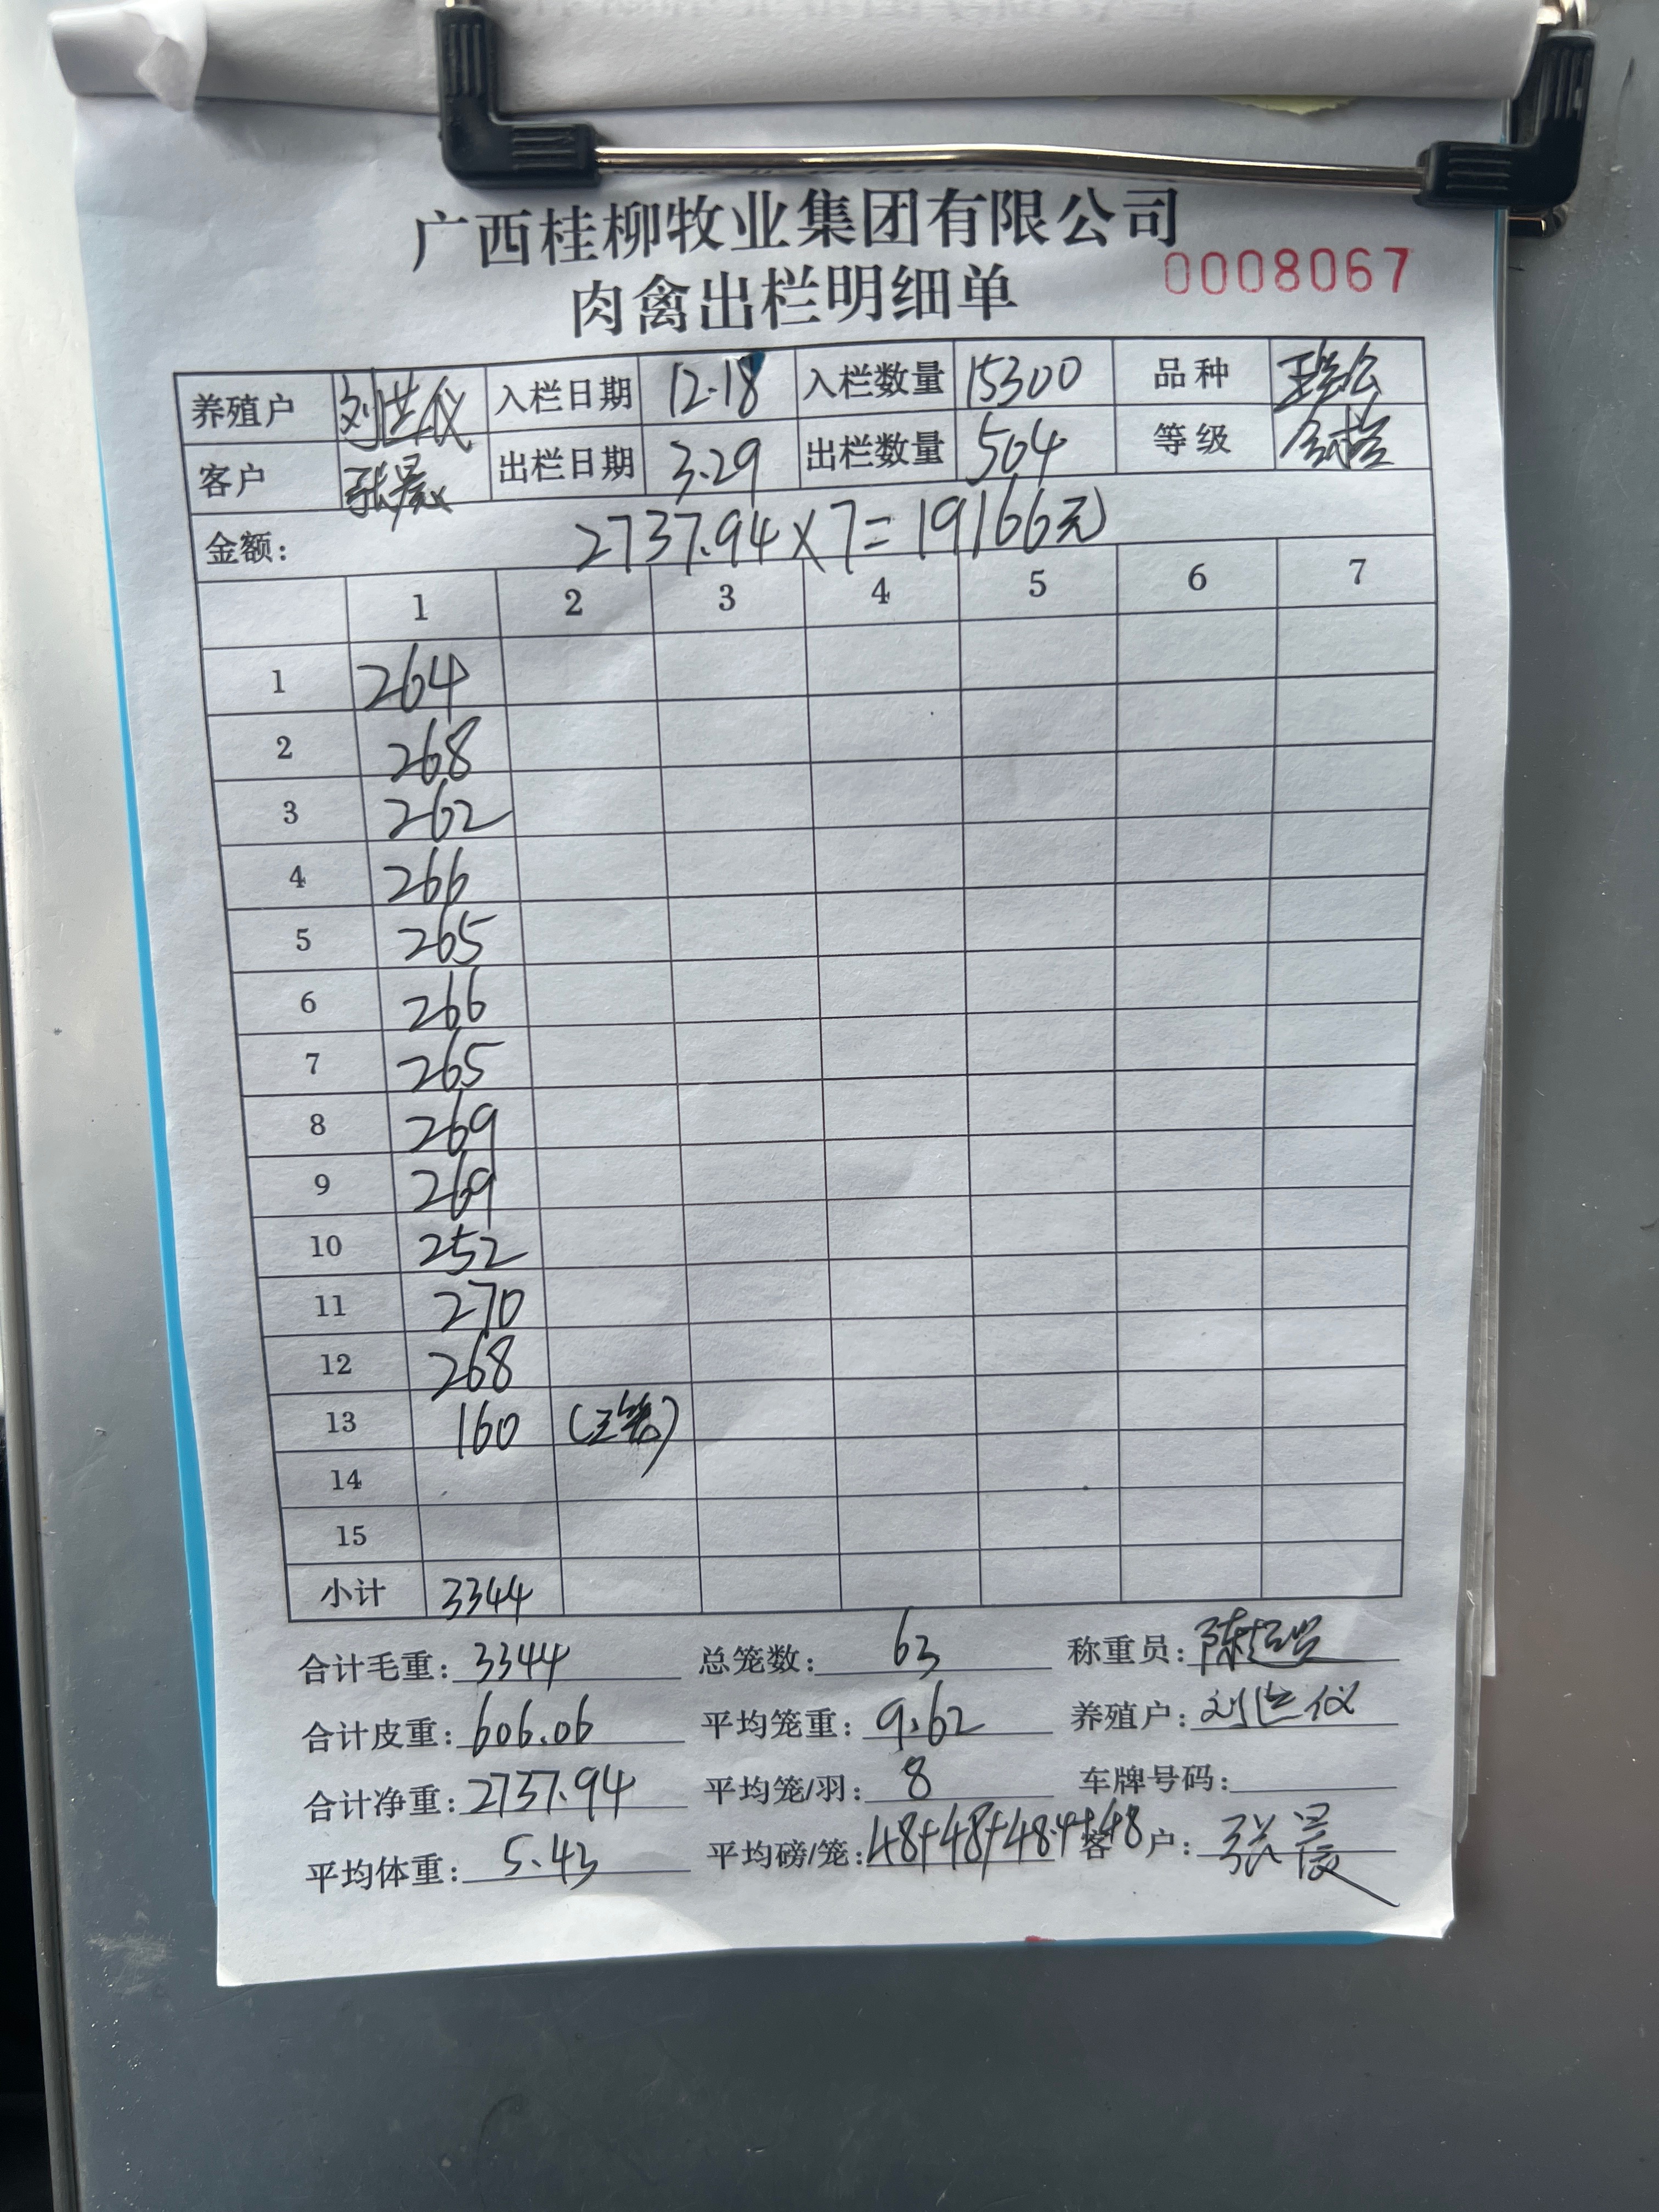 广西桂柳牧业集团有限公司
肉禽出栏明细单 0008067
养殖户 刘兰仪 入栏日期 12.18 入栏数量 15300 品种
客户 张晨 出栏日期 3.29 出栏数量 504 等级
金额: 2737.94×7=19166元
1 2 3 4 5 6 7
1 264
2 268
3 262
4 266
5 265
6 266
7 265
8 269
9 269
10 252
11 270
12 268
13 160 (三笼)
14
15
小计 3344
合计毛重: 3344 总笼数: 63 称重员: 陈超
合计皮重: 606.06 平均笼重: 9.62 养殖户: 刘兰仪
合计净重: 2737.94 平均笼/羽: 8 车牌号码:
平均体重: 5.43 平均磅/笼: 48+48+48.4+48 客户: 张晨